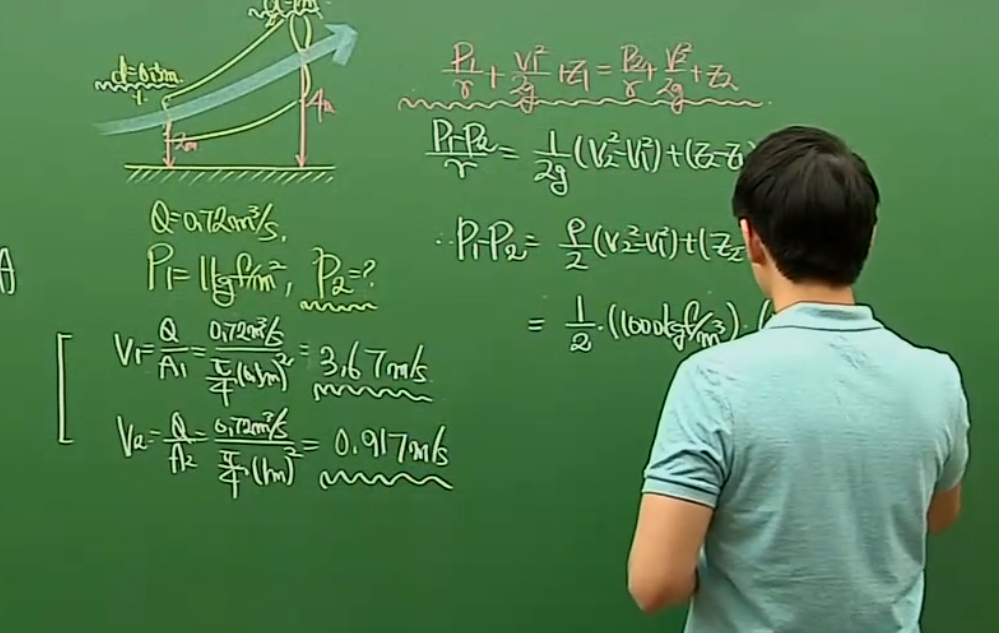 d=0.5m
2m
4m
Q=0.72m³/s.
P₁=1kgf/m², P₂=?
V₁=Q/A₁=0.72m³/s / π/4(0.5m)²=3.67m/s
V₂=Q/A₂=0.72m³/s / π/4·(1m)²=0.917m/s
P₁/γ+V₁²/2g+Z₁=P₂/γ+V₂²/2g+Z₂
P₁-P₂/γ=1/2g(V₂²-V₁²)+(Z₂-Z₁
∴P₁-P₂=ρ/2(V₂²-V₁²)+(Z₂
=1/2·(1000kgf/m³)·(
A